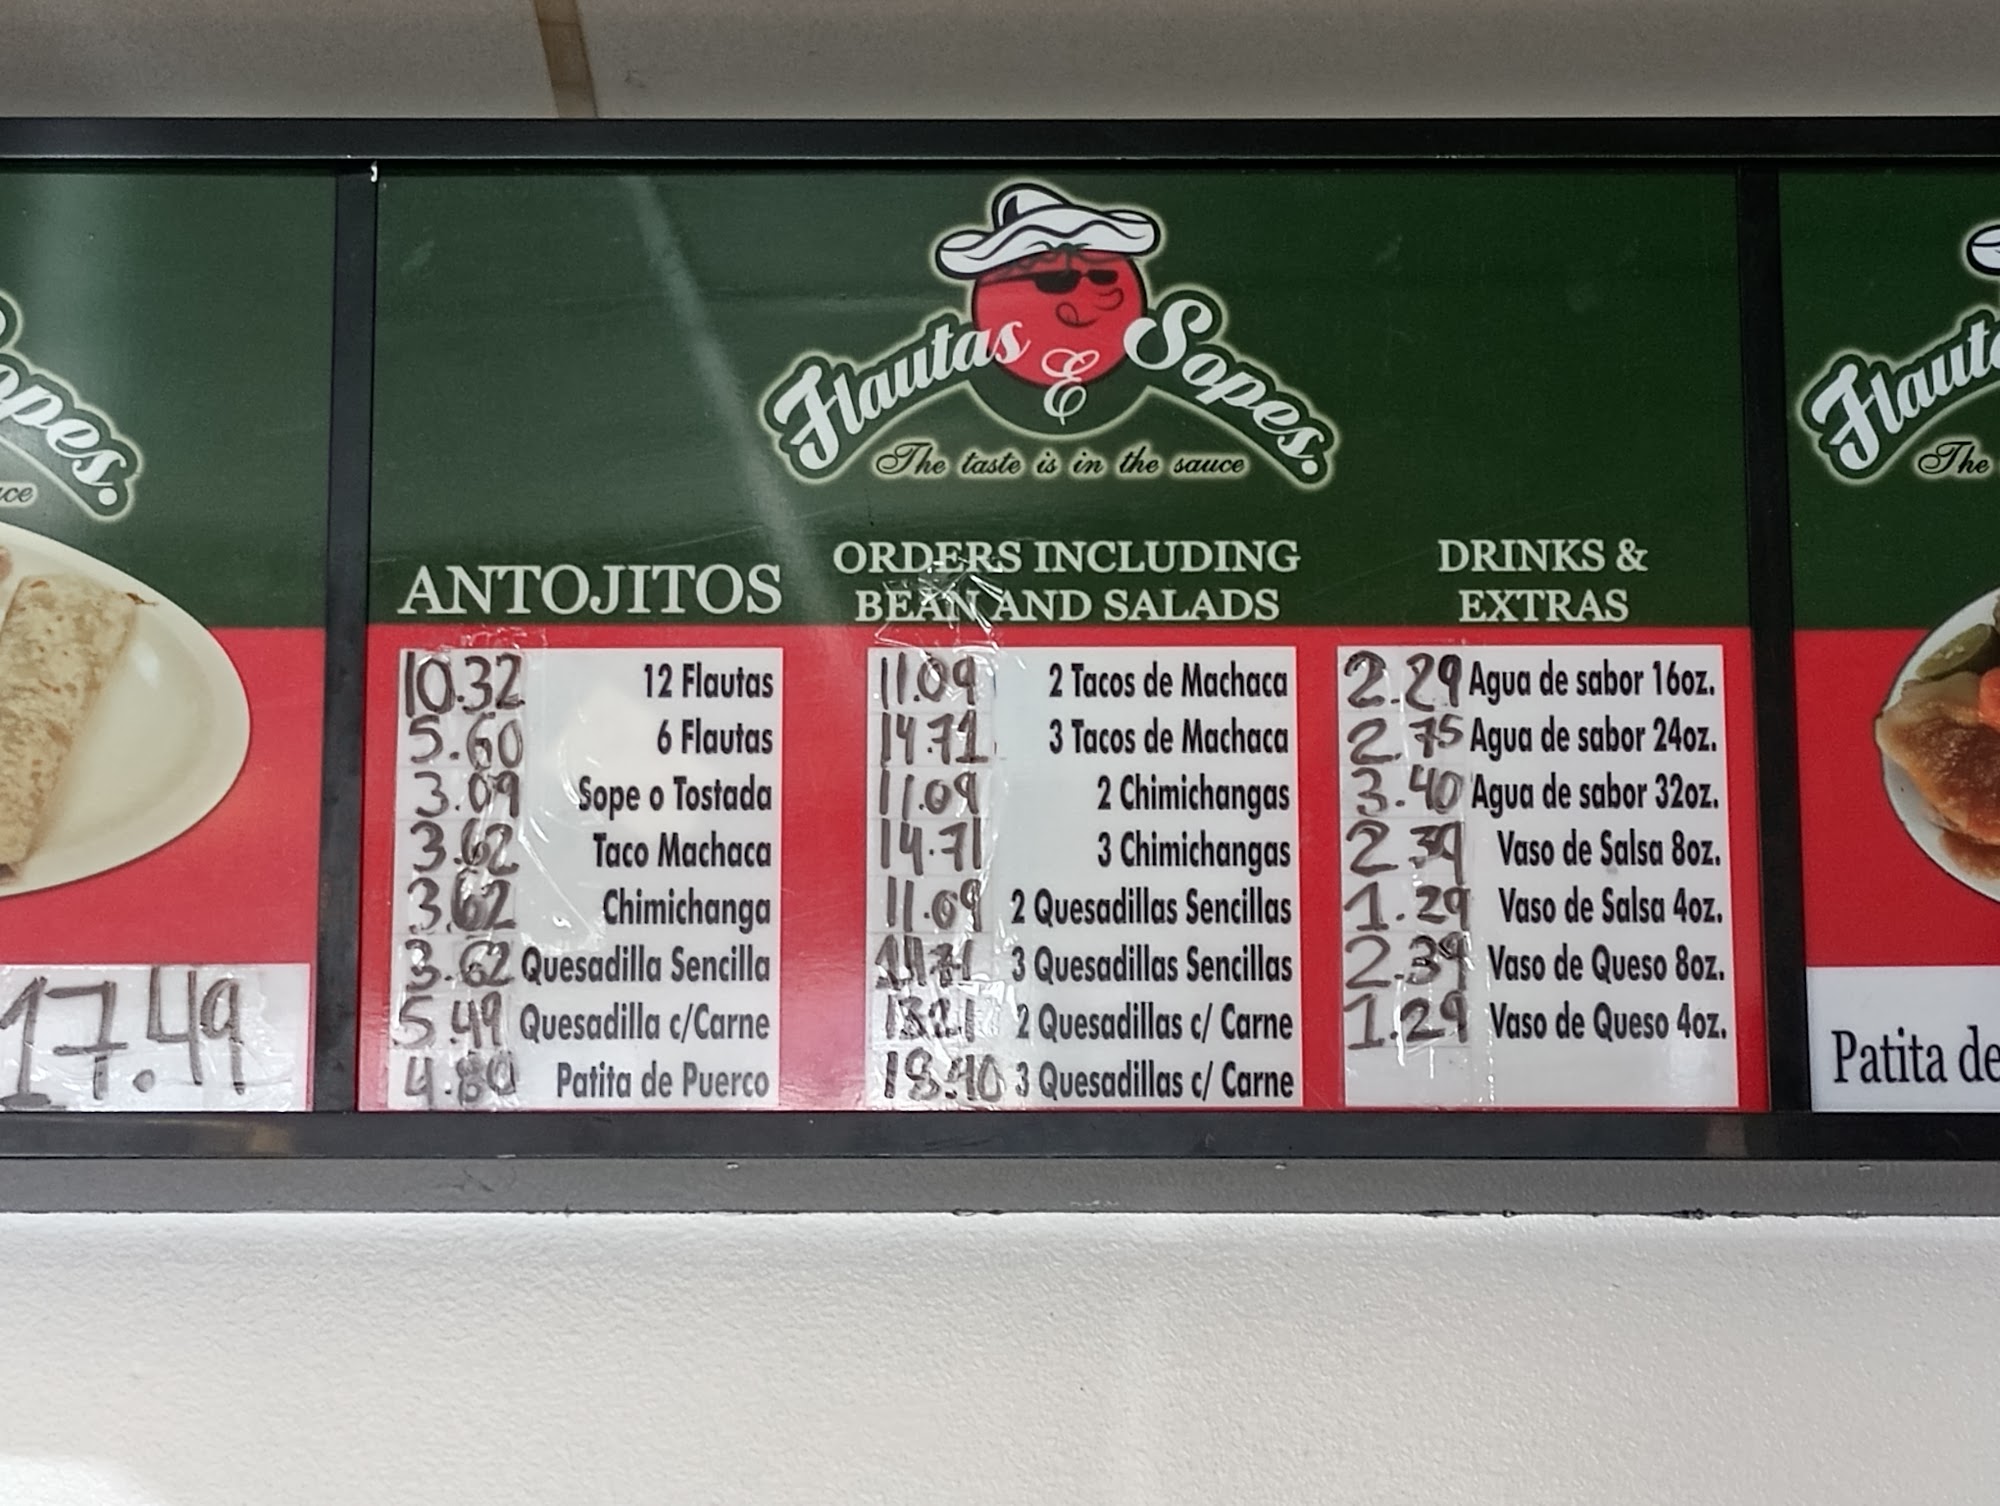 opes.
ce
17.49
Flautas
E
Sopes.
The taste is in the sauce
ANTOJITOS
10.32 12 Flautas
5.60 6 Flautas
3.09 Sope o Tostada
3.62 Taco Machaca
3.62 Chimichanga
3.62 Quesadilla Sencilla
5.49 Quesadilla c/Carne
4.80 Patita de Puerco
ORDERS INCLUDING
BEAN AND SALADS
11.09 2 Tacos de Machaca
14.71 3 Tacos de Machaca
11.09 2 Chimichangas
14.71 3 Chimichangas
11.09 2 Quesadillas Sencillas
14.71 3 Quesadillas Sencillas
13.21 2 Quesadillas c/ Carne
18.90 3 Quesadillas c/ Carne
DRINKS &
EXTRAS
2.29 Agua de sabor 16oz.
2.75 Agua de sabor 24oz.
3.40 Agua de sabor 32oz.
2.39 Vaso de Salsa 8oz.
1.29 Vaso de Salsa 4oz.
2.39 Vaso de Queso 8oz.
1.29 Vaso de Queso 4oz.
Flauta
The
Patita de